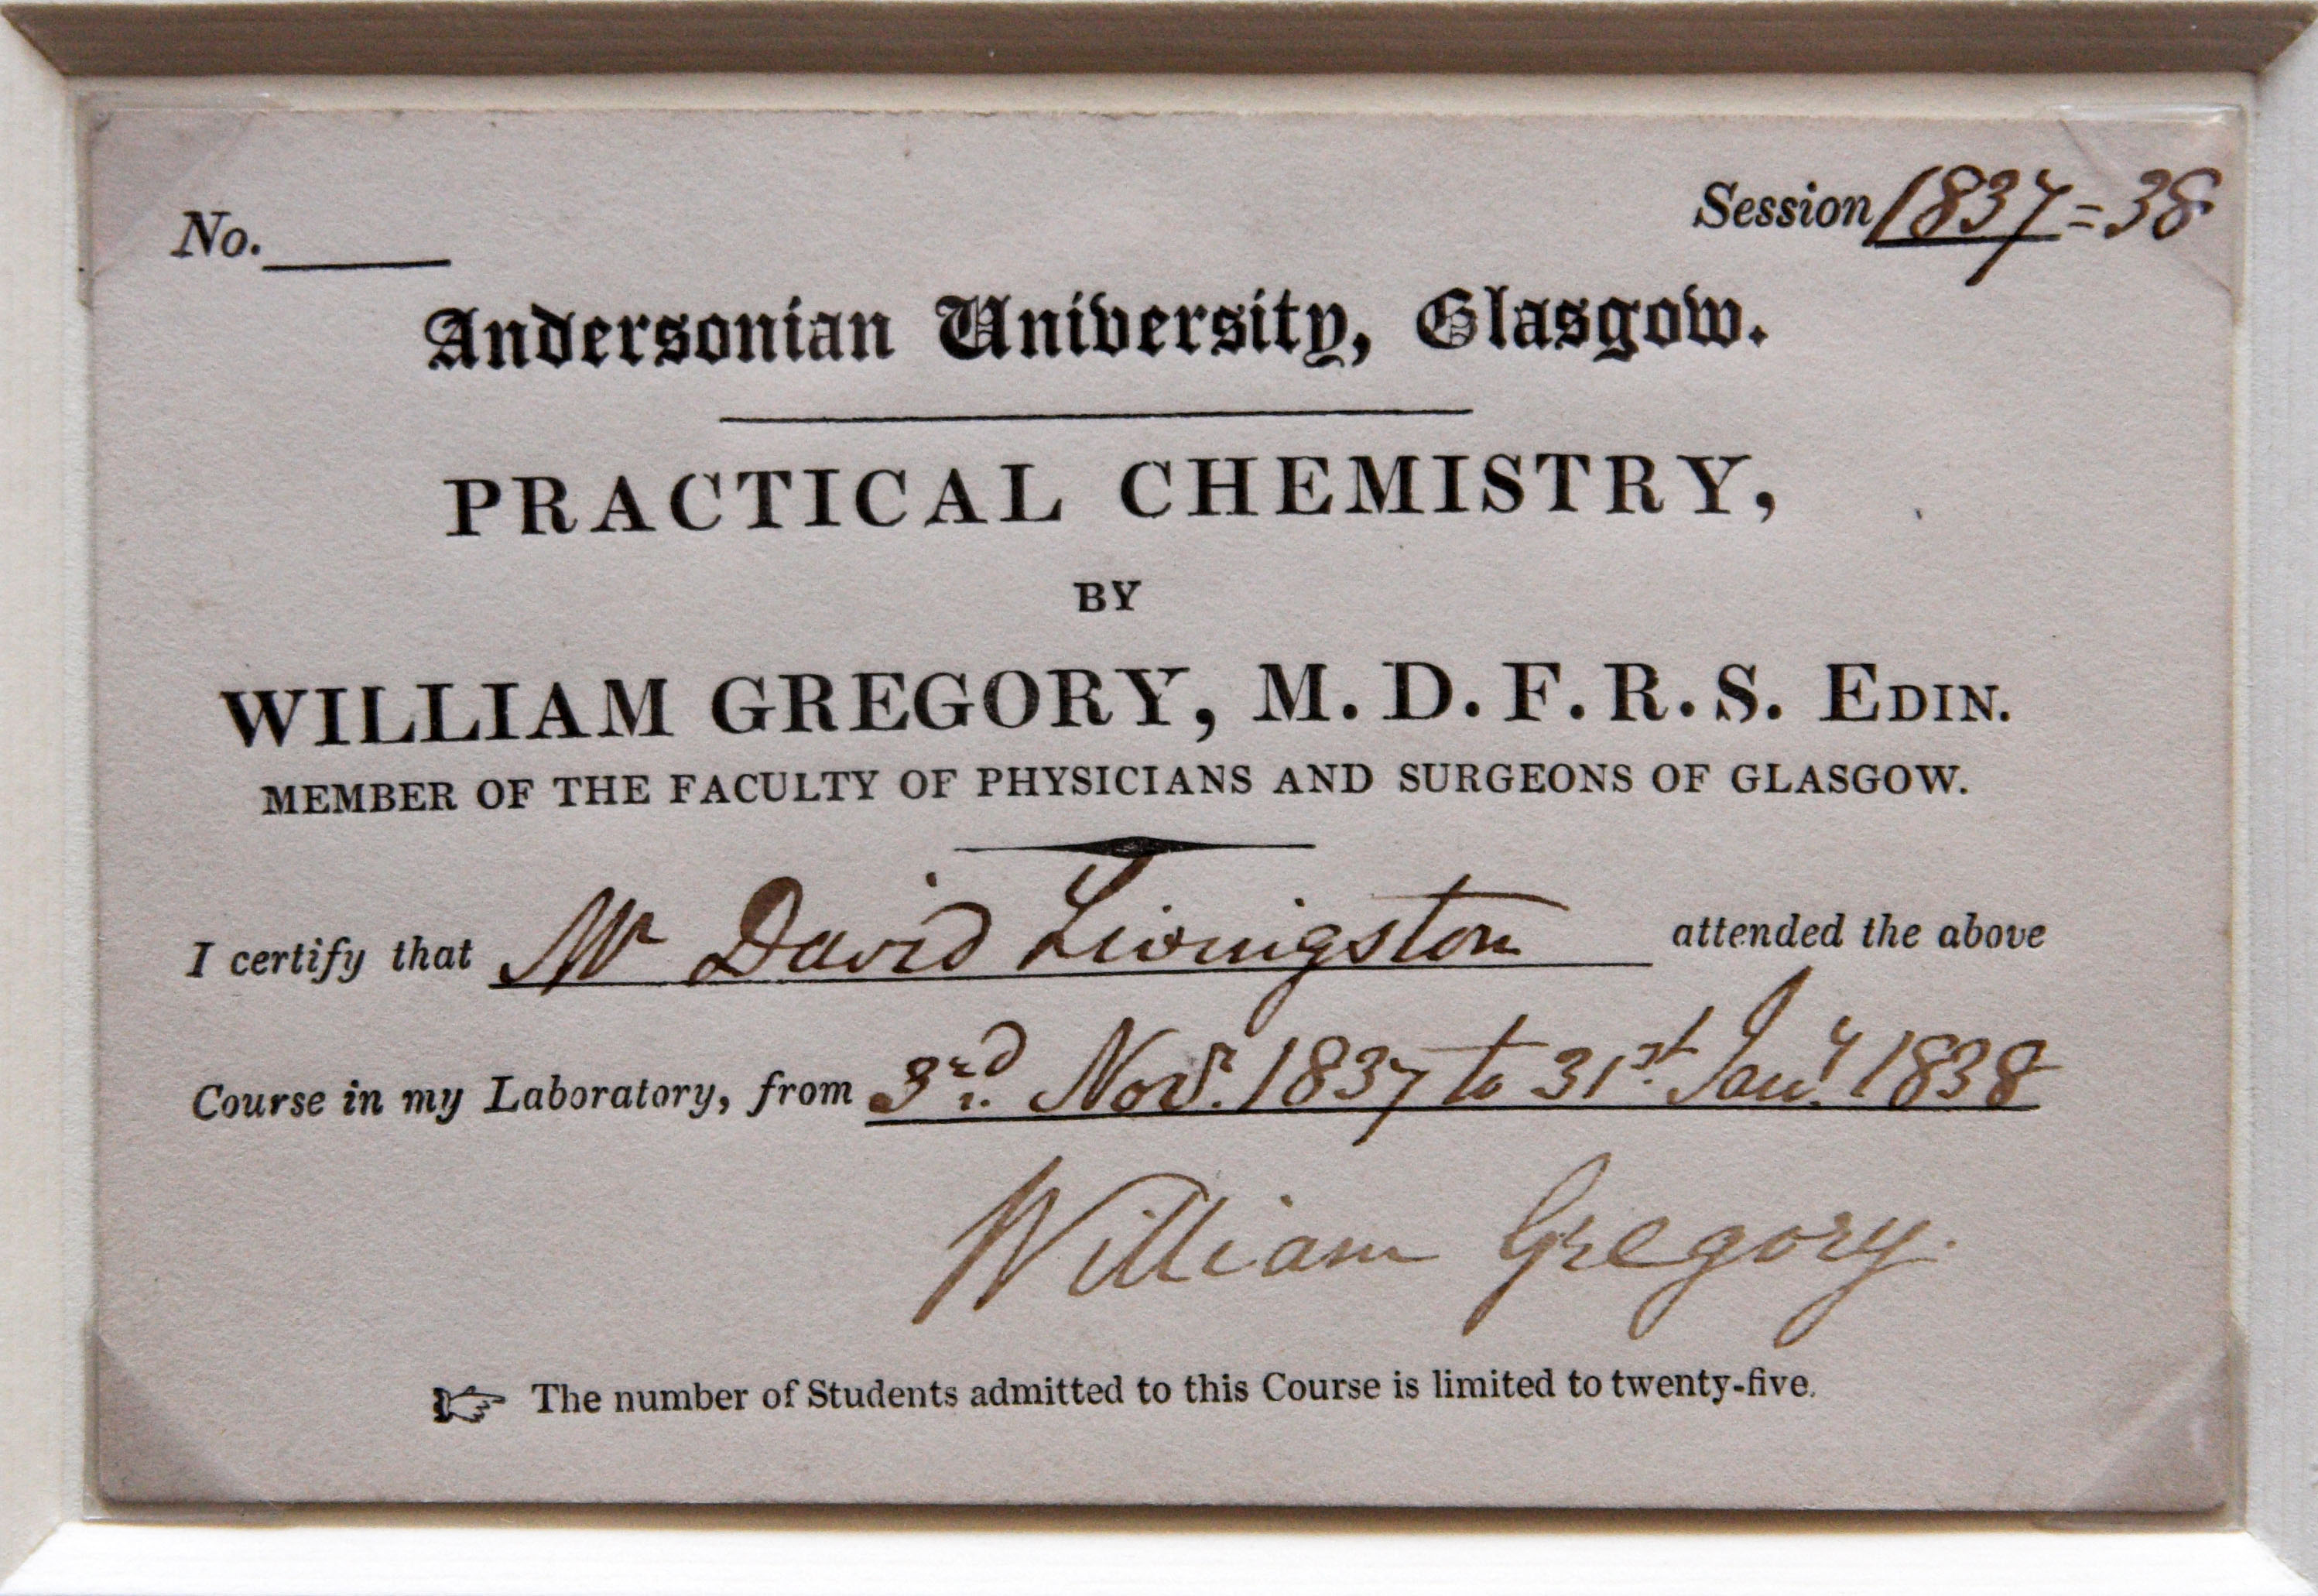 No.
Session 1837=38
Andersonian University, Glasgow.
PRACTICAL CHEMISTRY,
BY
WILLIAM GREGORY, M.D. F.R.S. EDIN.
MEMBER OF THE FACULTY OF PHYSICIANS AND SURGEONS OF GLASGOW.
I certify that Mr David Livingston attended the above
Course in my Laboratory, from 3rd. Novr. 1837 to 31st. Jany. 1838
William Gregory.
☞ The number of Students admitted to this Course is limited to twenty-five.